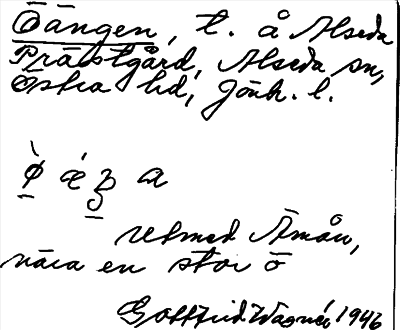 Öängen, t. å Alseda
Prästgård, Alseda sn,
Östra hd, Jönk. l.
ø̀ ǽ ŋ a
utmed Åmån,
nära en stor ö
Gottfrid Wagnér 1946